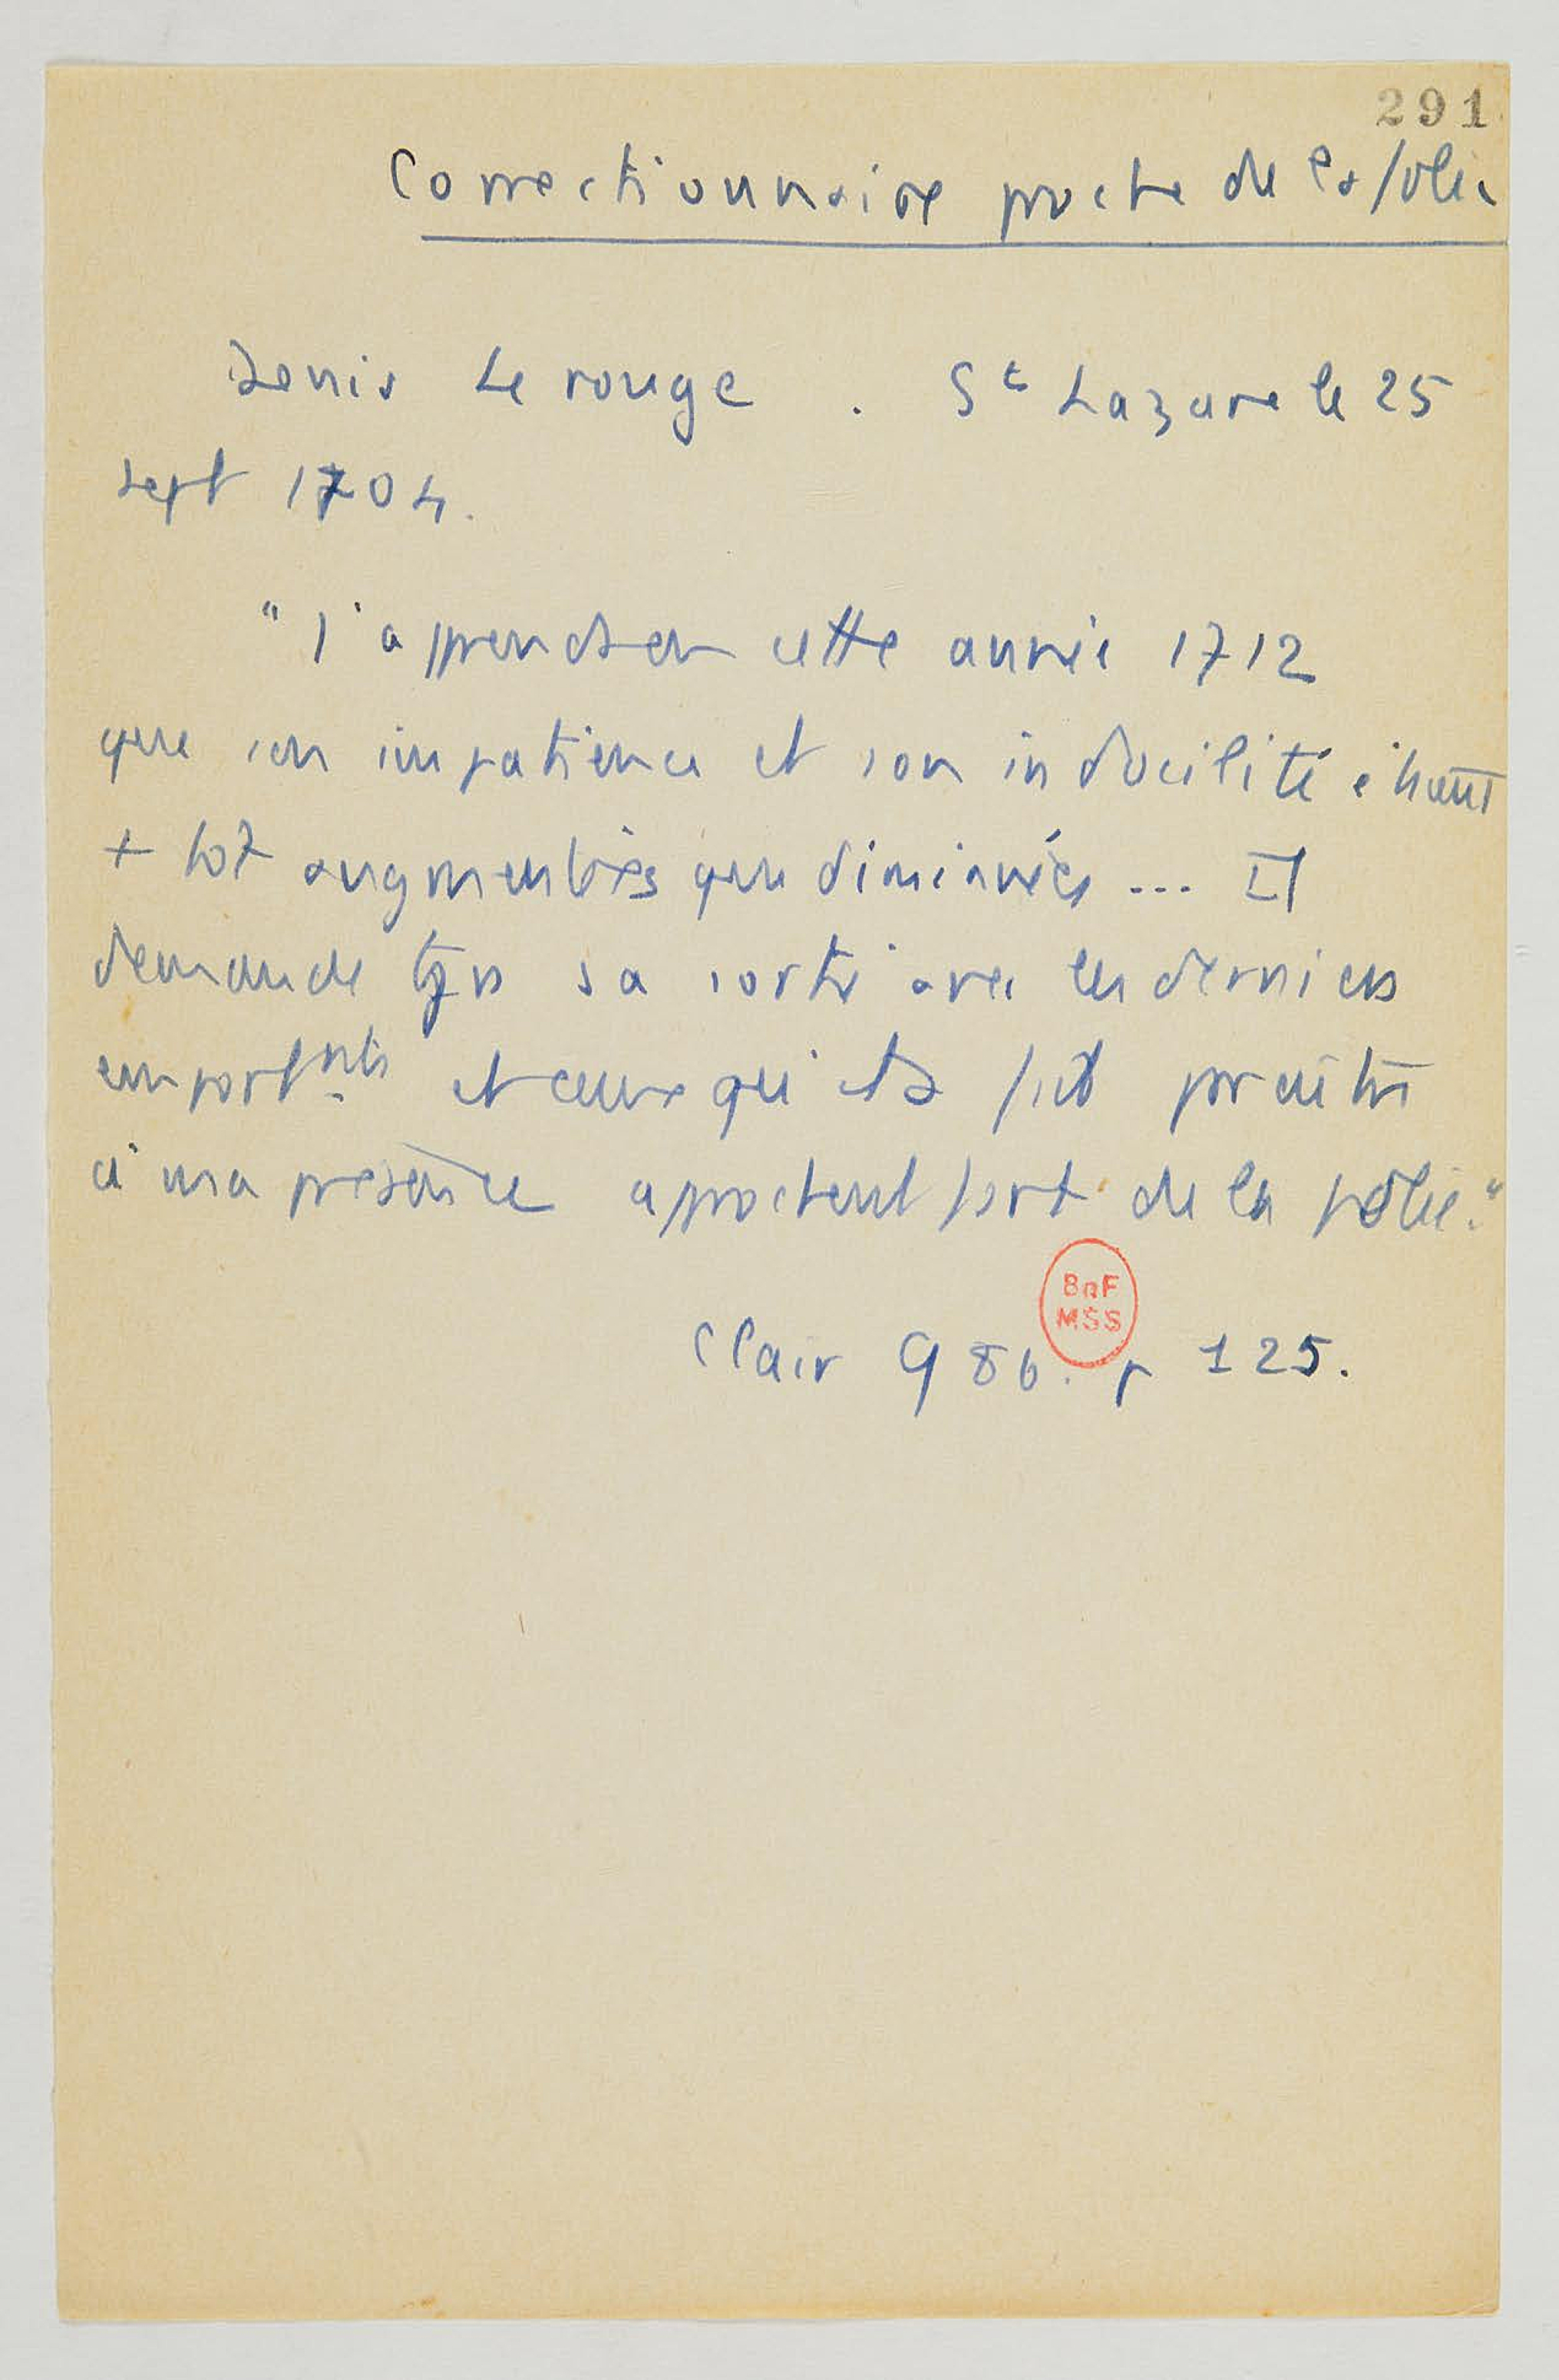 291
Correctionnaire proche de la folie
Denis Lerouge . St Lazare le 25
sept 1704.
"J'apprends en cette année 1712
que son impatience et son indocilité étaient
+ tôt augmentées que diminuées ... Il
demande tjrs sa sortie avec les derniers
emportnts et ceux qu'il fait paraître
à ma présence approchent fort de la folie."
BnF
MSS
Clair 986. p 125.